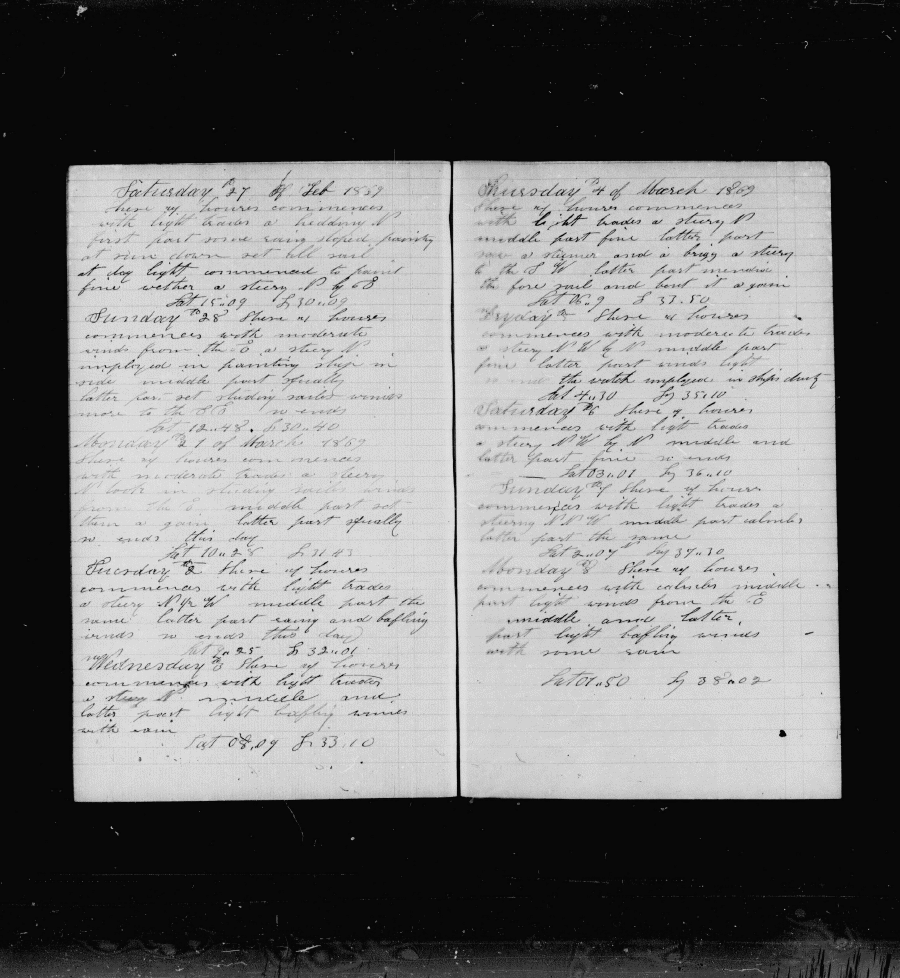 Saturday th 27 of Feb 1869
These 24 houres commences
with light trades a hedding N
first part some rainy stoped painting
at sun down set all sail
at day light commenced to paint
fine wether a steery N by E
Lat 15..09 Lg 30..09
Sunday th 28 These 24 houres
commences with moderate
winds from the E a steery N
imployed in painting ship in
side middle part squally
latter part set studing sailes winds
more to the so ends
Lat 12..48 Lg 30..40
Monday th 1 of March 1869
These 24 houres commences
with moderate trades a steery
N took in studing sailes winds
from the E middle part set
them a gain latter part squally
so ends this day
Lat 10..28 Lg 31 43
Tuesday th 2 These 24 houres
commences with light trades
a steery N W middle part the
same latter part rainy and baffling
winds so ends this day
Lat 9..25 Lg 32..01
Wednesday th 3 These 24 houres
commences with light trades
a steery N middle and
latter part light baffling winds
with rain
Lat 08..09 Lg 33..10
Thursday th 4 of March 1869
These 24 houres commences
with light trades a steery N
middle part fine latter part
saw a steemer and a brigg a steery
to the S W latter part mended
the fore sail and bent it a gain
Lat 06..9 Lg 37..50
Fryday th These 24 houres
commences with moderate trades
a steery N W by N middle part
fine latter part winds light
so ends the watch imployed in ships duty
Lat 4..30 Lg 35..10
Saturday th 6 These 24 houres
commences with light trades
a steery N W by N middle and
latter part fine so ends
Lat 03..01 Lg 36..10
Sunday th 7 These 24 houres
commences with light trades a
steering N N W middle part calmles
latter part the same
Lat 2..07 Lg 37..30
Monday th 8 These 24 houres
commences with calmles middle
part light winds from the E
middle and latter
part light baffling winds
with some rain
Lat 01..50 Lg 38..02